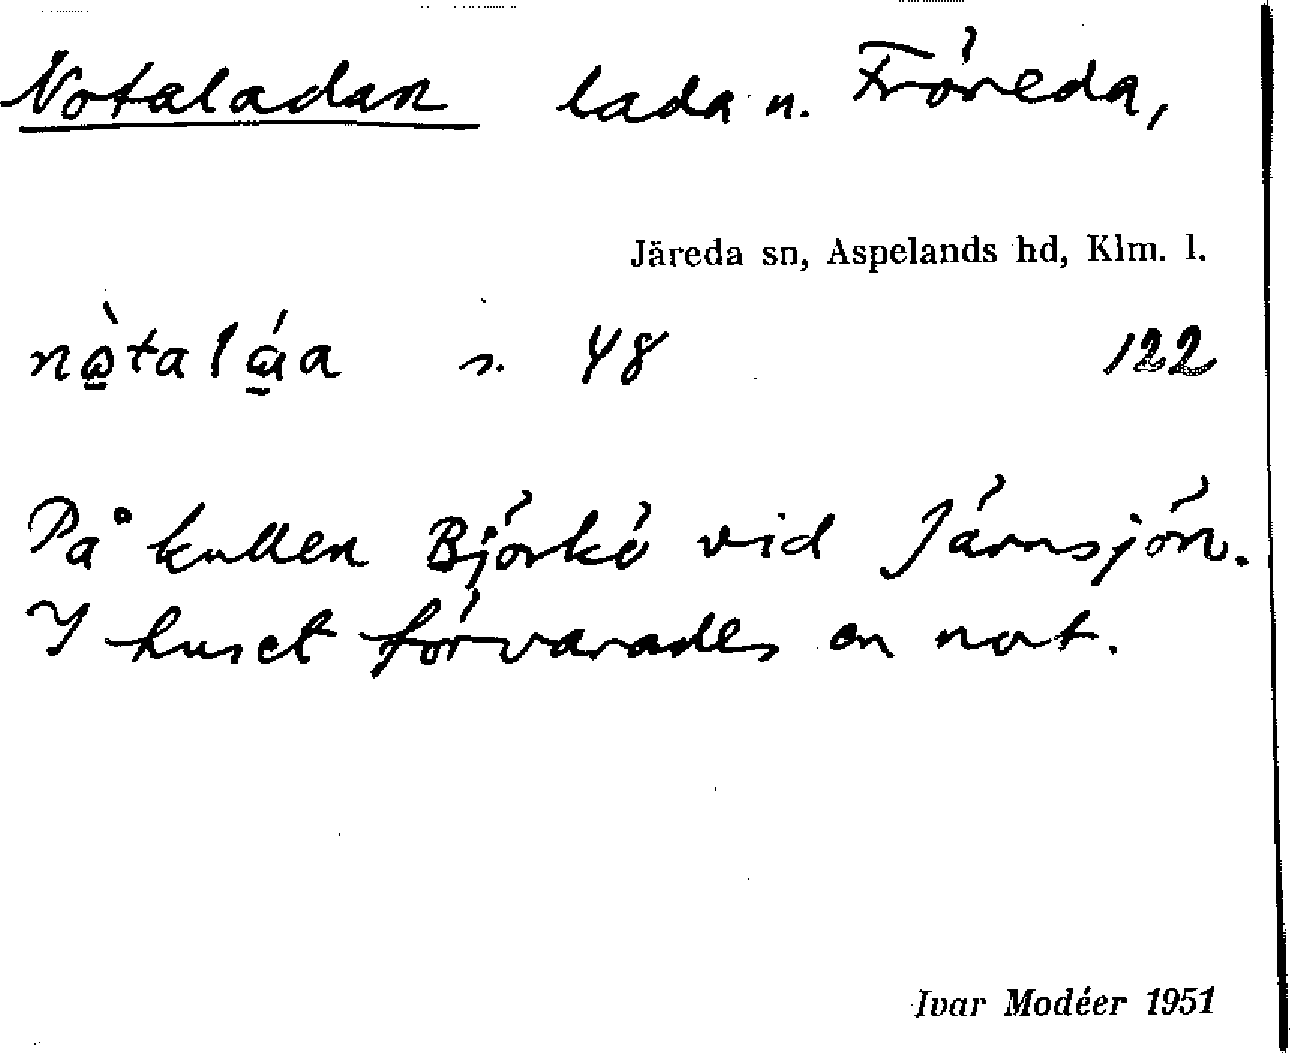 Notaladan lada n. Fröreda,
Järeda sn, Aspelands hd, Klm. l.
nὼ̱talώ̱a s. 48 122
På kullen Björkö vid Järnsjön.
I huset förvarades en not.
Ivar Modéer 1951